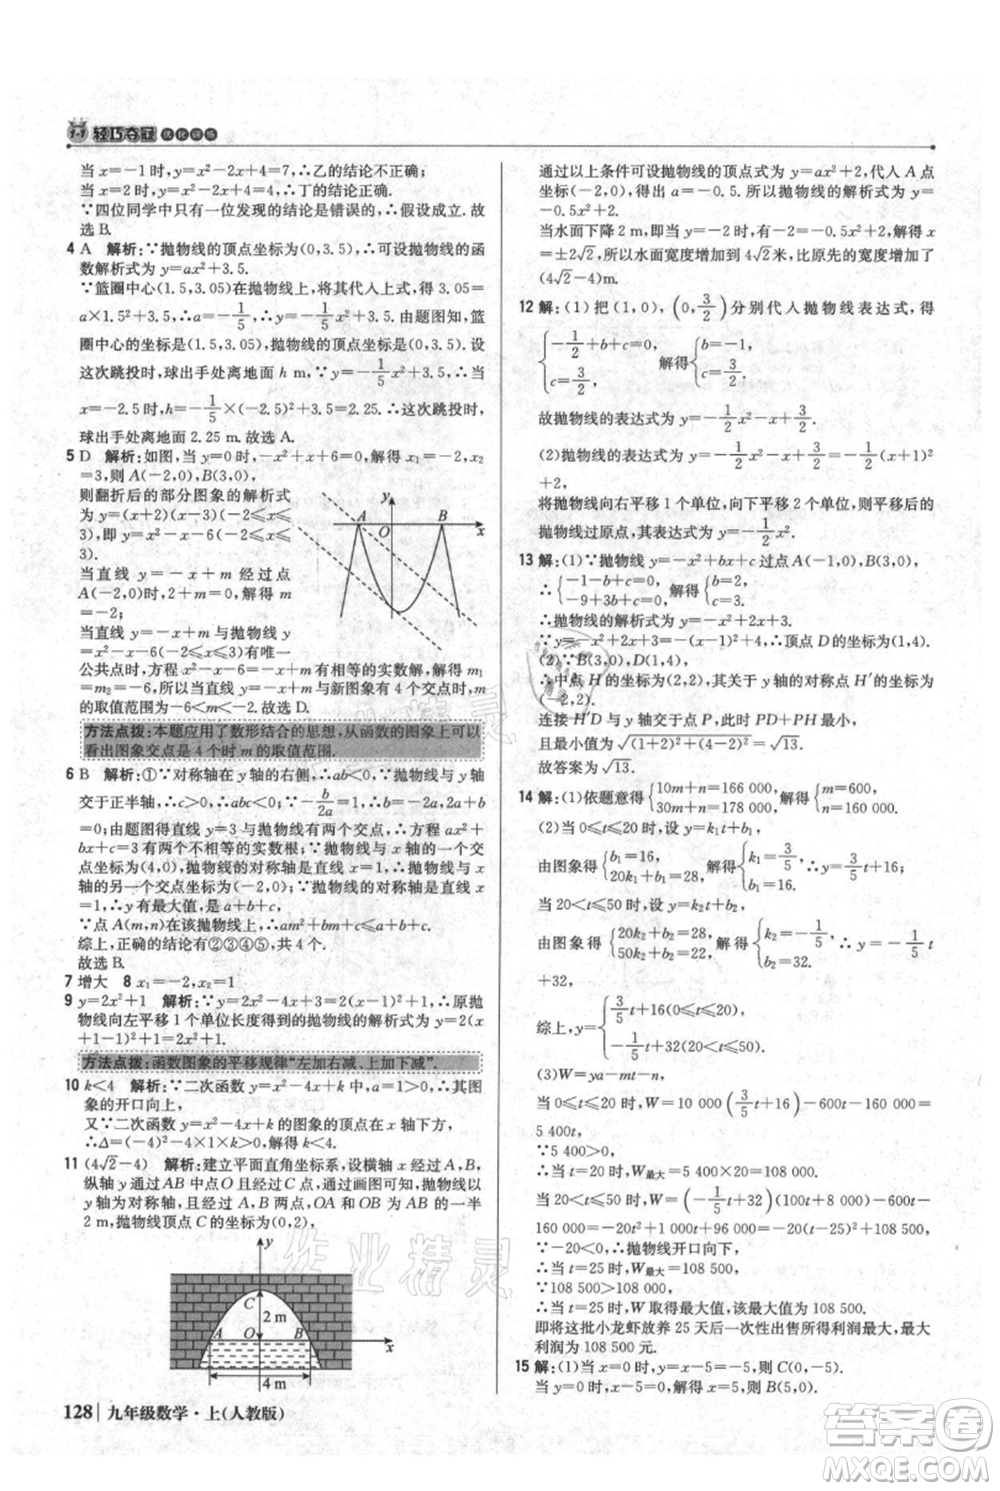 1+1 轻巧夺冠 优化训练
当 x=-1 时，y=x²-2x+4=7；∴乙的结论不正确；
当 x=2 时，y=x²-2x+4=4；∴丁的结论正确.
∵四位同学中只有一位发现的结论是错误的，∴假设成立. 故
选 B.
4 A 解析：∵抛物线的顶点坐标为(0,3.5)，∴可设抛物线的函
数解析式为 y=ax²+3.5.
∵篮圈中心(1.5,3.05)在抛物线上，将它代入上式，得 3.05=
a×1.5²+3.5，∴a=-1/5，∴y=-1/5x²+3.5. 由题图知，篮
圈中心的坐标是(1.5,3.05)，抛物线的顶点坐标是(0,3.5).
设这次跳投时，球出手处离地面 h m，∵y=-1/5x²+3.5，当
x=-2.5 时，h=-1/5×(-2.5)²+3.5=2.25. ∴这次跳投时，
球出手处离地面 2.25 m. 故选 A.
5 D 解析：如图，当 y=0 时，-x²+x+6=0，解得 x₁=-2，x₂
=3，则 A(-2,0)，B(3,0).
则翻折后的部分图象的解析式
为 y=(x+2)(x-3)(-2≤x≤
3)，即 y=x²-x-6(-2≤x≤
3).
当直线 y=-x+m 经过点
A(-2,0)时，2+m=0，解得 m
=-2；
当直线 y=-x+m 与抛物线 y
=x²-x-6(-2≤x≤3)有唯一
公共点时，方程 x²-x-6=-x+m 有相等的实数解，解得 m₁
=m₂=-6，∴当直线 y=-x+m 与新图象有 4 个交点时，m
的取值范围为-6<m<-2. 故选 D.
y
A
O
B
x
方法点拨：本题应用了数形结合的思想，从函数的图象上可以
看出图象交点是 4 个时 m 的取值范围.
6 B 解析：①∵对称轴在 y 轴的右侧，∴ab<0. ∵抛物线与 y 轴
交于正半轴，∴c>0，∴abc<0，故①错误；②∵-b/2a=1，∴2a+b=0；
③由题图得直线 y=3 与抛物线有两个交点，∴方程 ax²+bx
+c=3 有两个不相等的实数根；④∵抛物线与 x 轴的一个交点
坐标为(4,0)，抛物线的对称轴是直线 x=1，∴抛物线与 x 轴
的另一个交点坐标为(-2,0)；⑤∵抛物线的对称轴是直线 x
=1，∴y 有最大值，y最大=a+b+c.
∵点 A(m,n)在该抛物线上，∴am²+bm+c≤a+b+c.
综上，正确的结论有②③④⑤，共 4 个.
故选 B.
7 增大 8 x₁=-2，x₂=1
9 y=2x²+1 解析：∵y=2x²-4x+3=2(x-1)²+1，∴原抛
物线向左平移 1 个单位长度得到的抛物线的解析式为 y=2(x
+1-1)²+1=2x²+1.
方法点拨：函数图象的平移规律“左加右减、上加下减”.
10 k<4 解析：∵二次函数 y=x²-4x+k 中 a=1>0，∴图
象的开口向上，
又∵二次函数 y=x²-4x+k 的图象的顶点在 x 轴下方，
∴Δ=(-4)²-4×1×k>0，解得 k<4.
11 (4√2-4) 解析：建立平面直角坐标系，设横轴 x 通过 AB，
纵轴 y 为对称轴，与抛物线交于点 C，通过画图可知，
O 为原点，抛物线以 y 轴为对称轴，且过 A，B 两点，OA 和 OB 为 AB 的一半
2 m，抛物线顶点 C 的坐标为(0,2)，
y
C
2 m
A
O
B
x
4 m
128 九年级数学·上(人教版)
通过以上条件可设抛物线的顶点式为 y=ax²+2，代入 A 点
坐标(-2,0)，得出 a=-0.5. 所以抛物线的解析式为 y=
-0.5x²+2.
当水面下降 2 m，即当 y=-2 时，-2=-0.5x²+2，解得 x=
±2√2，所以水面宽度增加到 4√2米，比原先的宽度增加了
(4√2-4)m.
12 解：(1)把(1,0)，(0,3/2)分别代入抛物线表达式，得
{-1/2+b+c=0，c=3/2，解得{b=-1，c=3/2.
故抛物线的表达式为 y=-1/2x²-x+3/2.
(2)∵抛物线的表达式为 y=-1/2x²-x+3/2=-1/2(x+1)²+2，
将抛物线向右平移 1 个单位，向下平移 2 个单位，平移后的
抛物线过原点，其表达式为 y=-1/2x².
13 解：(1)∵抛物线 y=-x²+bx+c 过点 A(-1,0)，B(3,0)，
∴{-1-b+c=0，-9+3b+c=0，解得{b=2，c=3，
∴抛物线的解析式为 y=-x²+2x+3.
∵y=-x²+2x+3=-(x-1)²+4，∴顶点 D 的坐标为(1,4).
(2)∵B(3,0)，D(1,4)，
∴中点 H 的坐标为(2,2)，其关于 y 轴的对称点 H′的坐标为
(-2,2).
连接 H′D 与 y 轴交于点 P，此时 PD+PH 最小，
且最小值为√((1+2)²+(4-2)²)=√13.
故答案为√13.
14 解：(1)依题意得{10m+n=166 000，30m+n=178 000，解得{m=600，n=160 000.
(2)当 0≤t≤20 时，设 y=k₁t+b₁，
由图象得{b₁=16，20k₁+b₁=28，解得{k₁=3/5，b₁=16. ∴y=3/5t+16.
当 20<t≤50 时，设 y=k₂t+b₂，
由图象得{20k₂+b₂=28，50k₂+b₂=22，解得{k₂=-1/5，b₂=32，∴y=-1/5t
+32，
综上，y={3/5t+16(0≤t≤20)，-1/5t+32(20<t≤50).
(3)W=ya-mt-n，
当 0≤t≤20 时，W=10 000(3/5t+16)-600t-160 000=
5 400t.
∵5 400>0，
∴当 t=20 时，W最大=5 400×20=108 000，
当 20<t≤50 时，W=(-1/5t+32)(100t+8 000)-600t-
160 000=-20t²+1 000t+96 000=-20(t-25)²+108 500.
∵-20<0，抛物线开口向下，
∴当 t=25 时，W最大=108 500，
∵108 500>108 000，
∴当 t=25 时，W 取得最大值，该最大值为 108 500 元.
即将这批小龙虾放养 25 天后一次性出售所得利润最大，最大
利润为 108 500 元.
15 解：(1)当 x=0 时，y=x-5=-5，则 C(0,-5)，
当 y=0 时，x-5=0，解得 x=5，则 B(5,0)，
作业精灵
答案圈
MXQE.COM